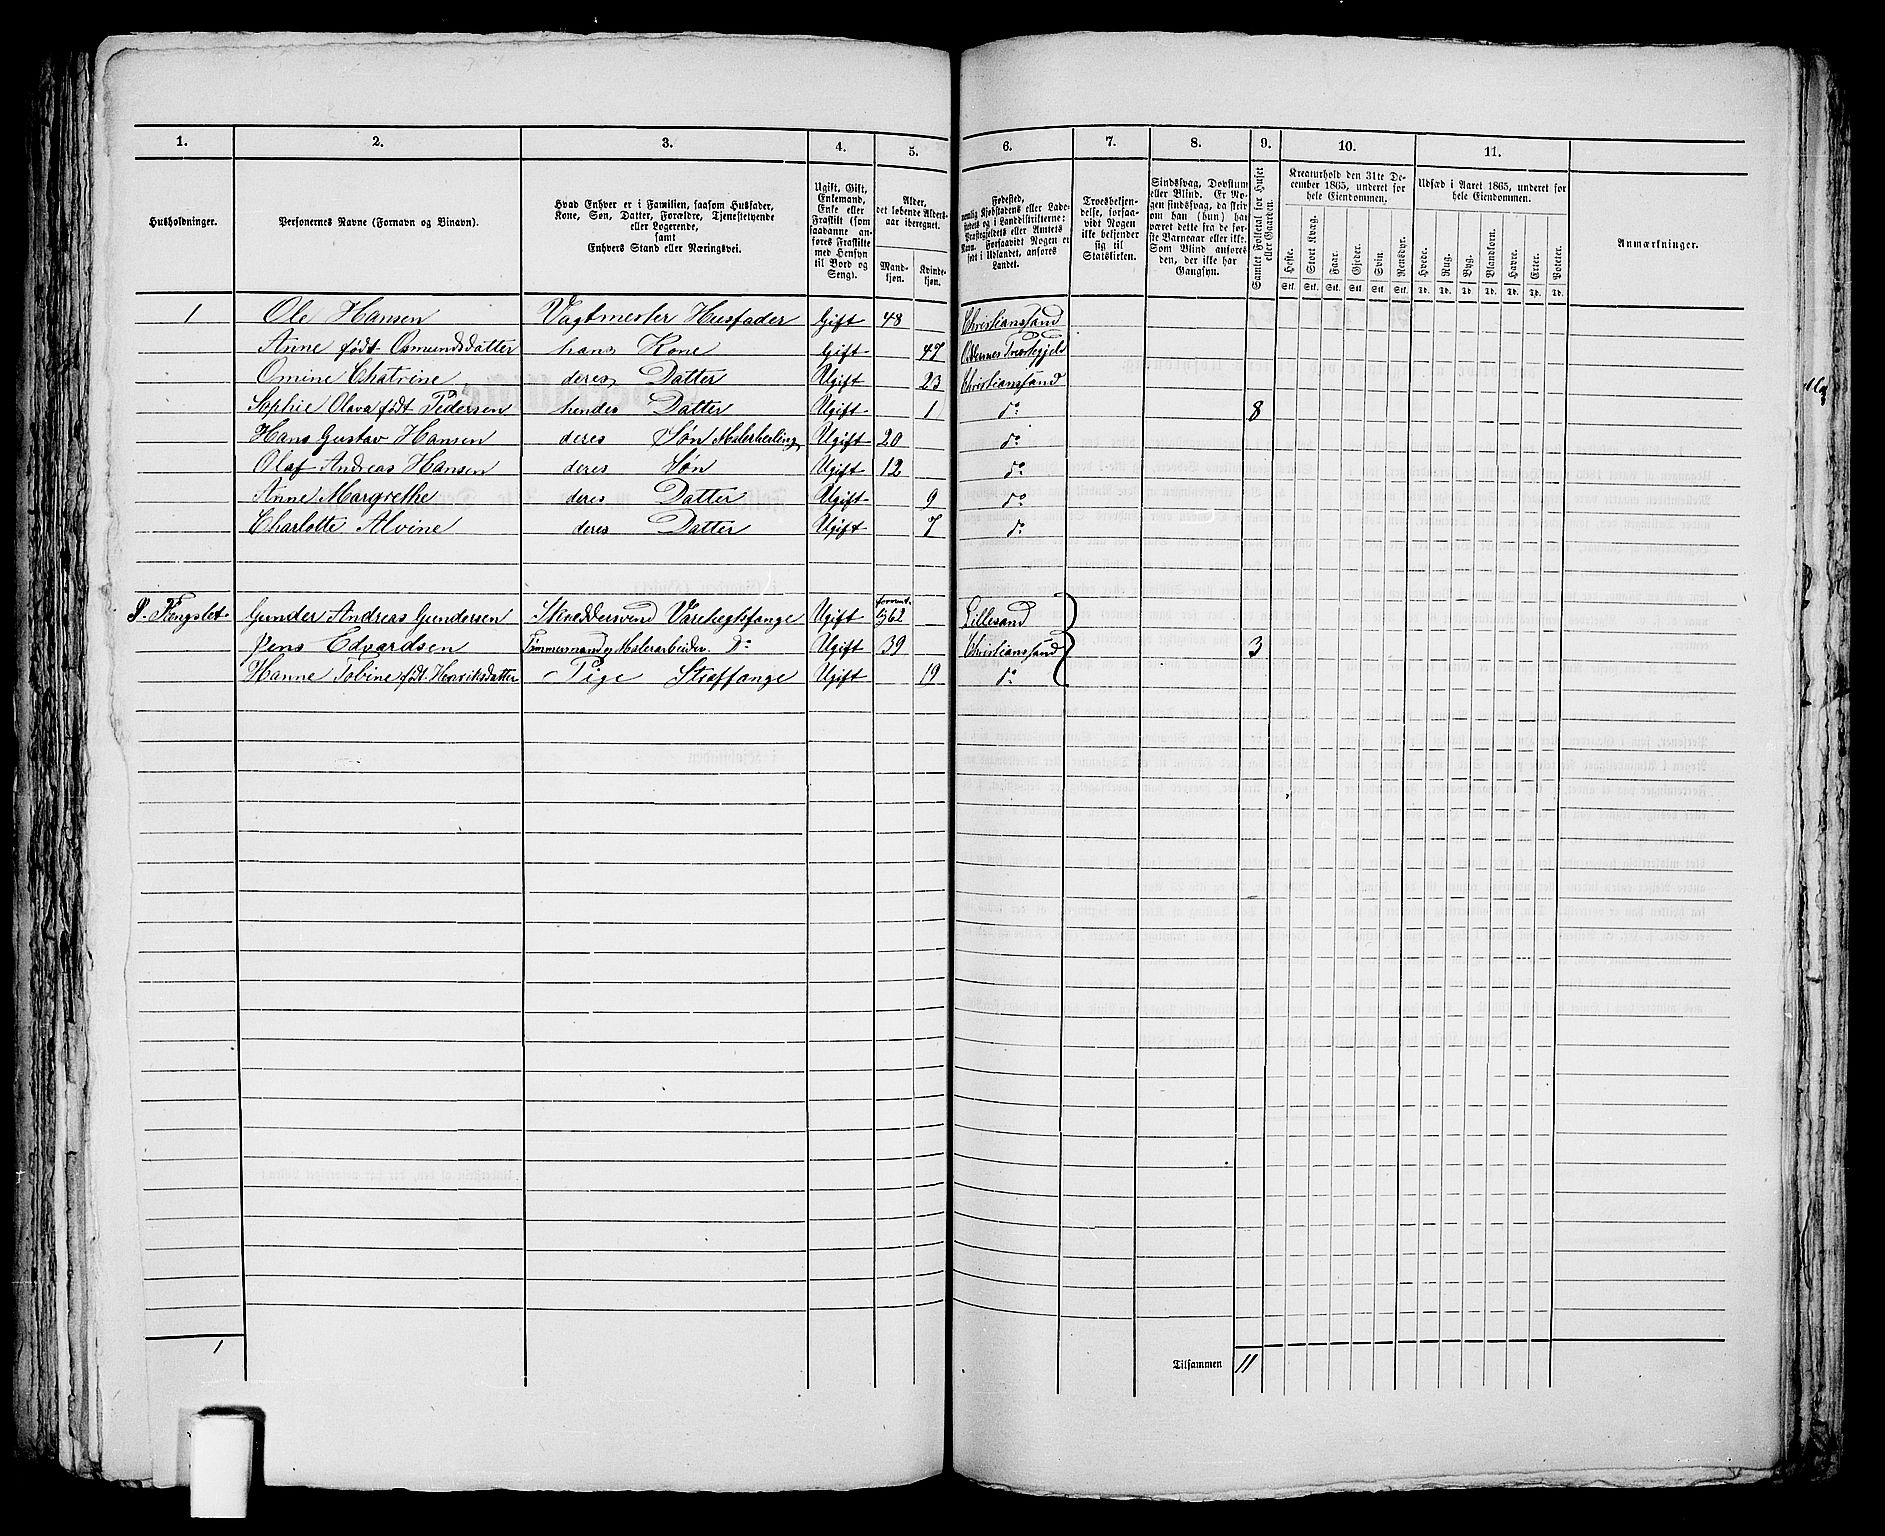 1. 2. 3. 4. 5. 6. 7. 8. 9. 10. 11.
Husholdninger.
Personernes Navne (Fornavn og Binavn).
Hvad Enhver er i Familien, saasom Husfader,
Kone, Søn, Datter, Forældre, Tjenestetyende
eller Logerende,
samt
Enhvers Stand eller Næringsvei.
Ugift, Gift,
Enkemand,
Enke eller
Fraskilt (som
saadanne an-
føres Fraskilte
med Hensyn
til Bord og
Seng).
Alder,
det løbende Alders-
aar iberegnet.
Mand-
kjøn.
Kvinde-
kjøn.
Fødested,
nemlig Kjøbstadens eller Lade-
stedets og i Landdistrikterne:
Præstegjeldets eller Amtets
Navn. Forsaavidt Nogen er
født i Udlandet, anføres
Landet.
Troesbekjen-
delse, forsaa-
vidt Nogen
ikke bekjender
sig til
Statskirken.
Sindssvag, Døvstum
eller Blind. Er No-
gen sindssvag, da skriv
om han (hun) har
været dette fra de før-
ste Barneaar eller ikke.
Som Blind anføres
den, der ikke har
Gangsyn.
Samlet Folketal for Huset
eller Gaarden.
Kreaturhold den 31te De-
cember 1865, underet for
hele Eiendommen.
Heste. Stort Kvæg. Faar. Gjeder. Svin. Rensdyr.
Stk. Stk. Stk. Stk. Stk. Stk.
Udsæd i Aaret 1865, underet for
hele Eiendommen.
Hvede. Rug. Byg. Blandkorn. Havre. Erter. Poteter.
Td. Td. Td. Td. Td. Td. Td.
Anmærkninger.
1 Ole Hansen Vagtmester Husfader Gift 48 Christianssand
Anne født Osmundsdatter hans Kone Gift 47 Oddernes Præstegjeld
Omine Chatrine deres Datter Ugift 23 Christianssand
Sophie Olava født Pedersen hendes Datter Ugift 1 do 8
Hans Gustav Hansen deres Søn Ugift 20 do
Olaf Andreas Hansen deres Søn Ugift 12 do
Anne Margrethe deres Datter Ugift 9 do
Charlotte Alvine deres Datter Ugift 7 do
Gunder Andreas Gundersen Skræddersvend Varetægtsfange Ugift 62 Lillesand
Jens Edvardsen Tømmermand og Malerarbeider Do Ugift 39 Christianssand 3
Hanne Tobine født Henriksdatter Pige Straffange Ugift 19 do
1
Tilsammen 11